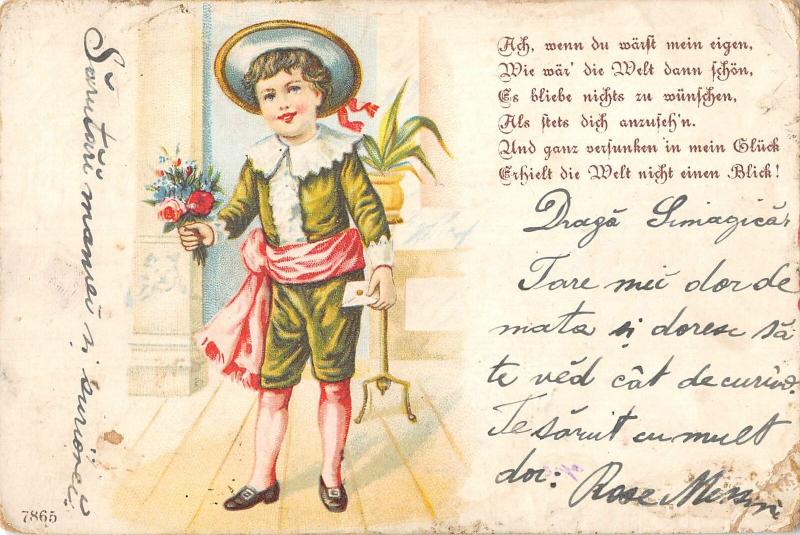 Ach, wenn du wärst mein eigen,
Wie wär' die Welt dann schön,
Es bliebe nichts zu wünschen,
Als stets dich anzuseh'n.
Und ganz versunken in mein Glück
Erhielt die Welt nicht einen Blick!
Dragă
Tare mi dor de
mata și doresc să
te văd cât de curind.
Te sărut cu mult
dor.
Rose
Sărutări mamei și surioarei.
7865